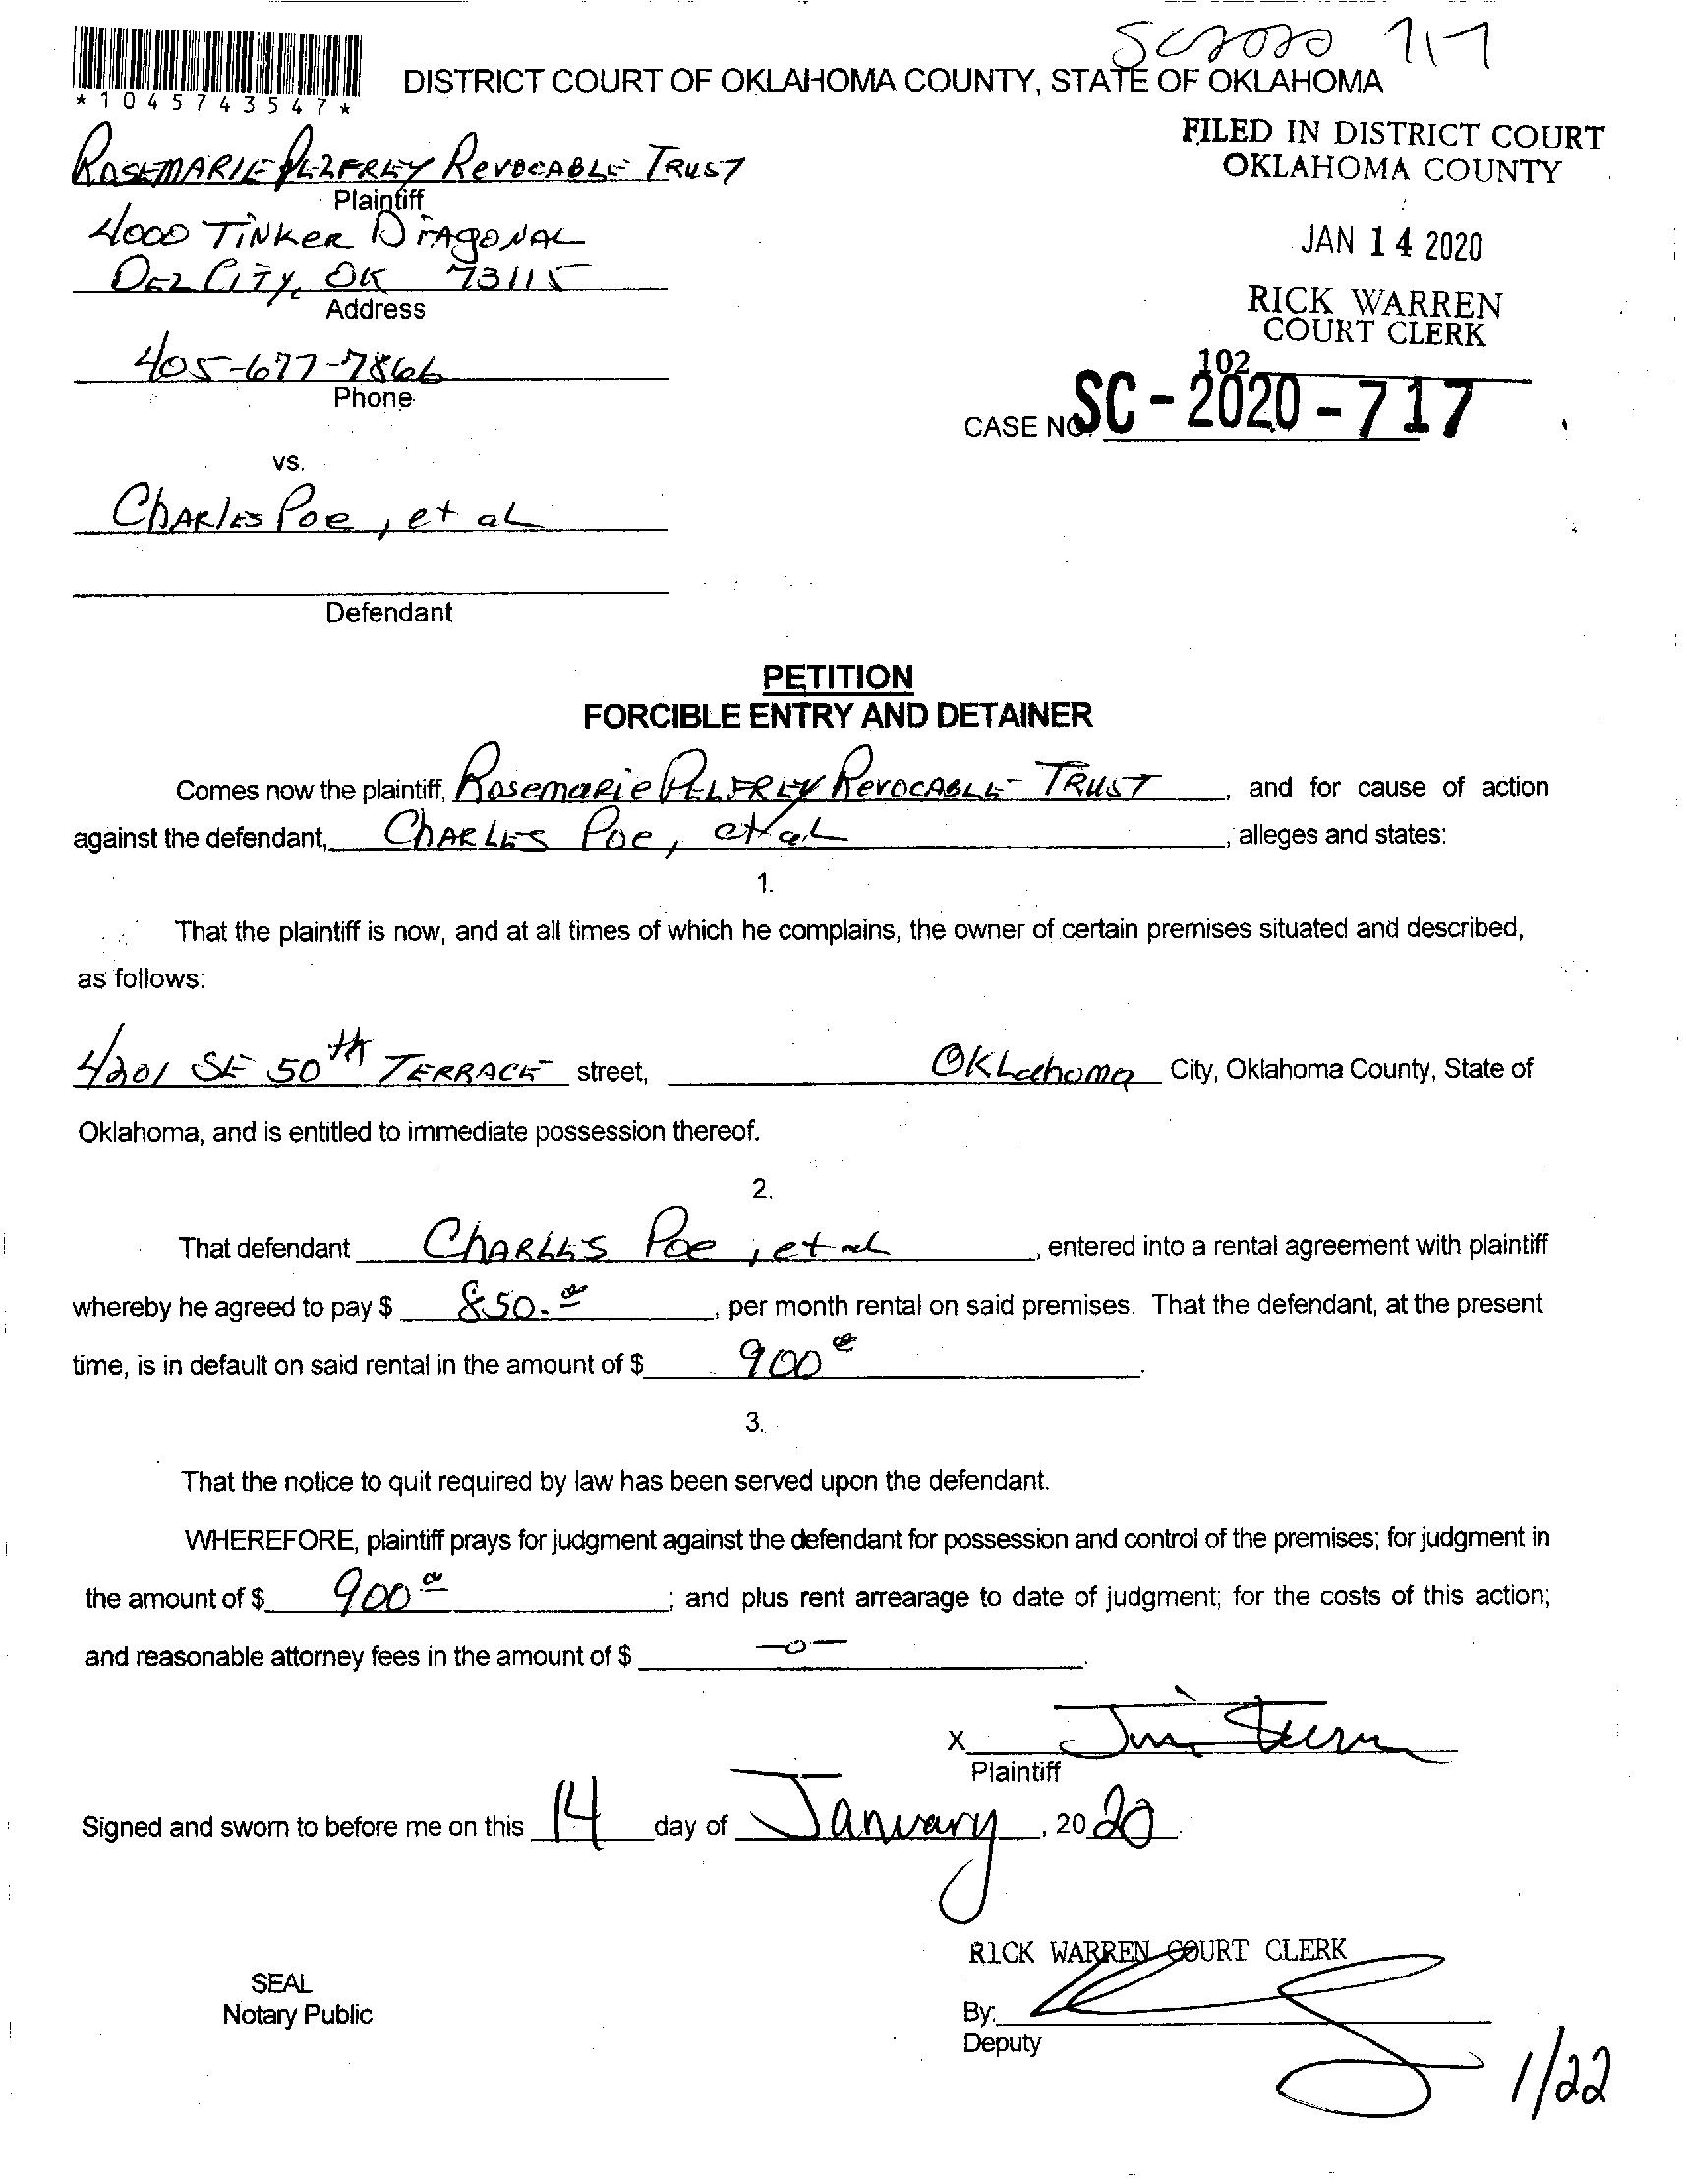 SC2020 717
*1045743547*
DISTRICT COURT OF OKLAHOMA COUNTY, STATE OF OKLAHOMA
FILED IN DISTRICT COURT
OKLAHOMA COUNTY
JAN 14 2020
RICK WARREN
COURT CLERK
102
CASE NO. SC-2020-717
ROSEMARIE PELFREY REVOCABLE TRUST
Plaintiff
4000 TINKER DIAGONAL
DEL CITY, OK 73115
Address
405-677-7866
Phone
vs.
CHARLES POE, et al
Defendant
PETITION
FORCIBLE ENTRY AND DETAINER
Comes now the plaintiff, Rosemarie PELFREY REVOCABLE TRUST, and for cause of action
against the defendant, CHARLES Poe, et al, alleges and states:
1.
That the plaintiff is now, and at all times of which he complains, the owner of certain premises situated and described,
as follows:
4201 SE 50th TERRACE street, Oklahoma City, Oklahoma County, State of
Oklahoma, and is entitled to immediate possession thereof.
2.
That defendant CHARLES Poe, et al, entered into a rental agreement with plaintiff
whereby he agreed to pay $ 850.00, per month rental on said premises. That the defendant, at the present
time, is in default on said rental in the amount of $ 900 00.
3.
That the notice to quit required by law has been served upon the defendant.
WHEREFORE, plaintiff prays for judgment against the defendant for possession and control of the premises; for judgment in
the amount of $ 900 00; and plus rent arrearage to date of judgment; for the costs of this action;
and reasonable attorney fees in the amount of $ -0-.
X Jim
Plaintiff
Signed and sworn to before me on this 14 day of January, 2020.
RICK WARREN COURT CLERK
SEAL
Notary Public
By:
Deputy
1/22